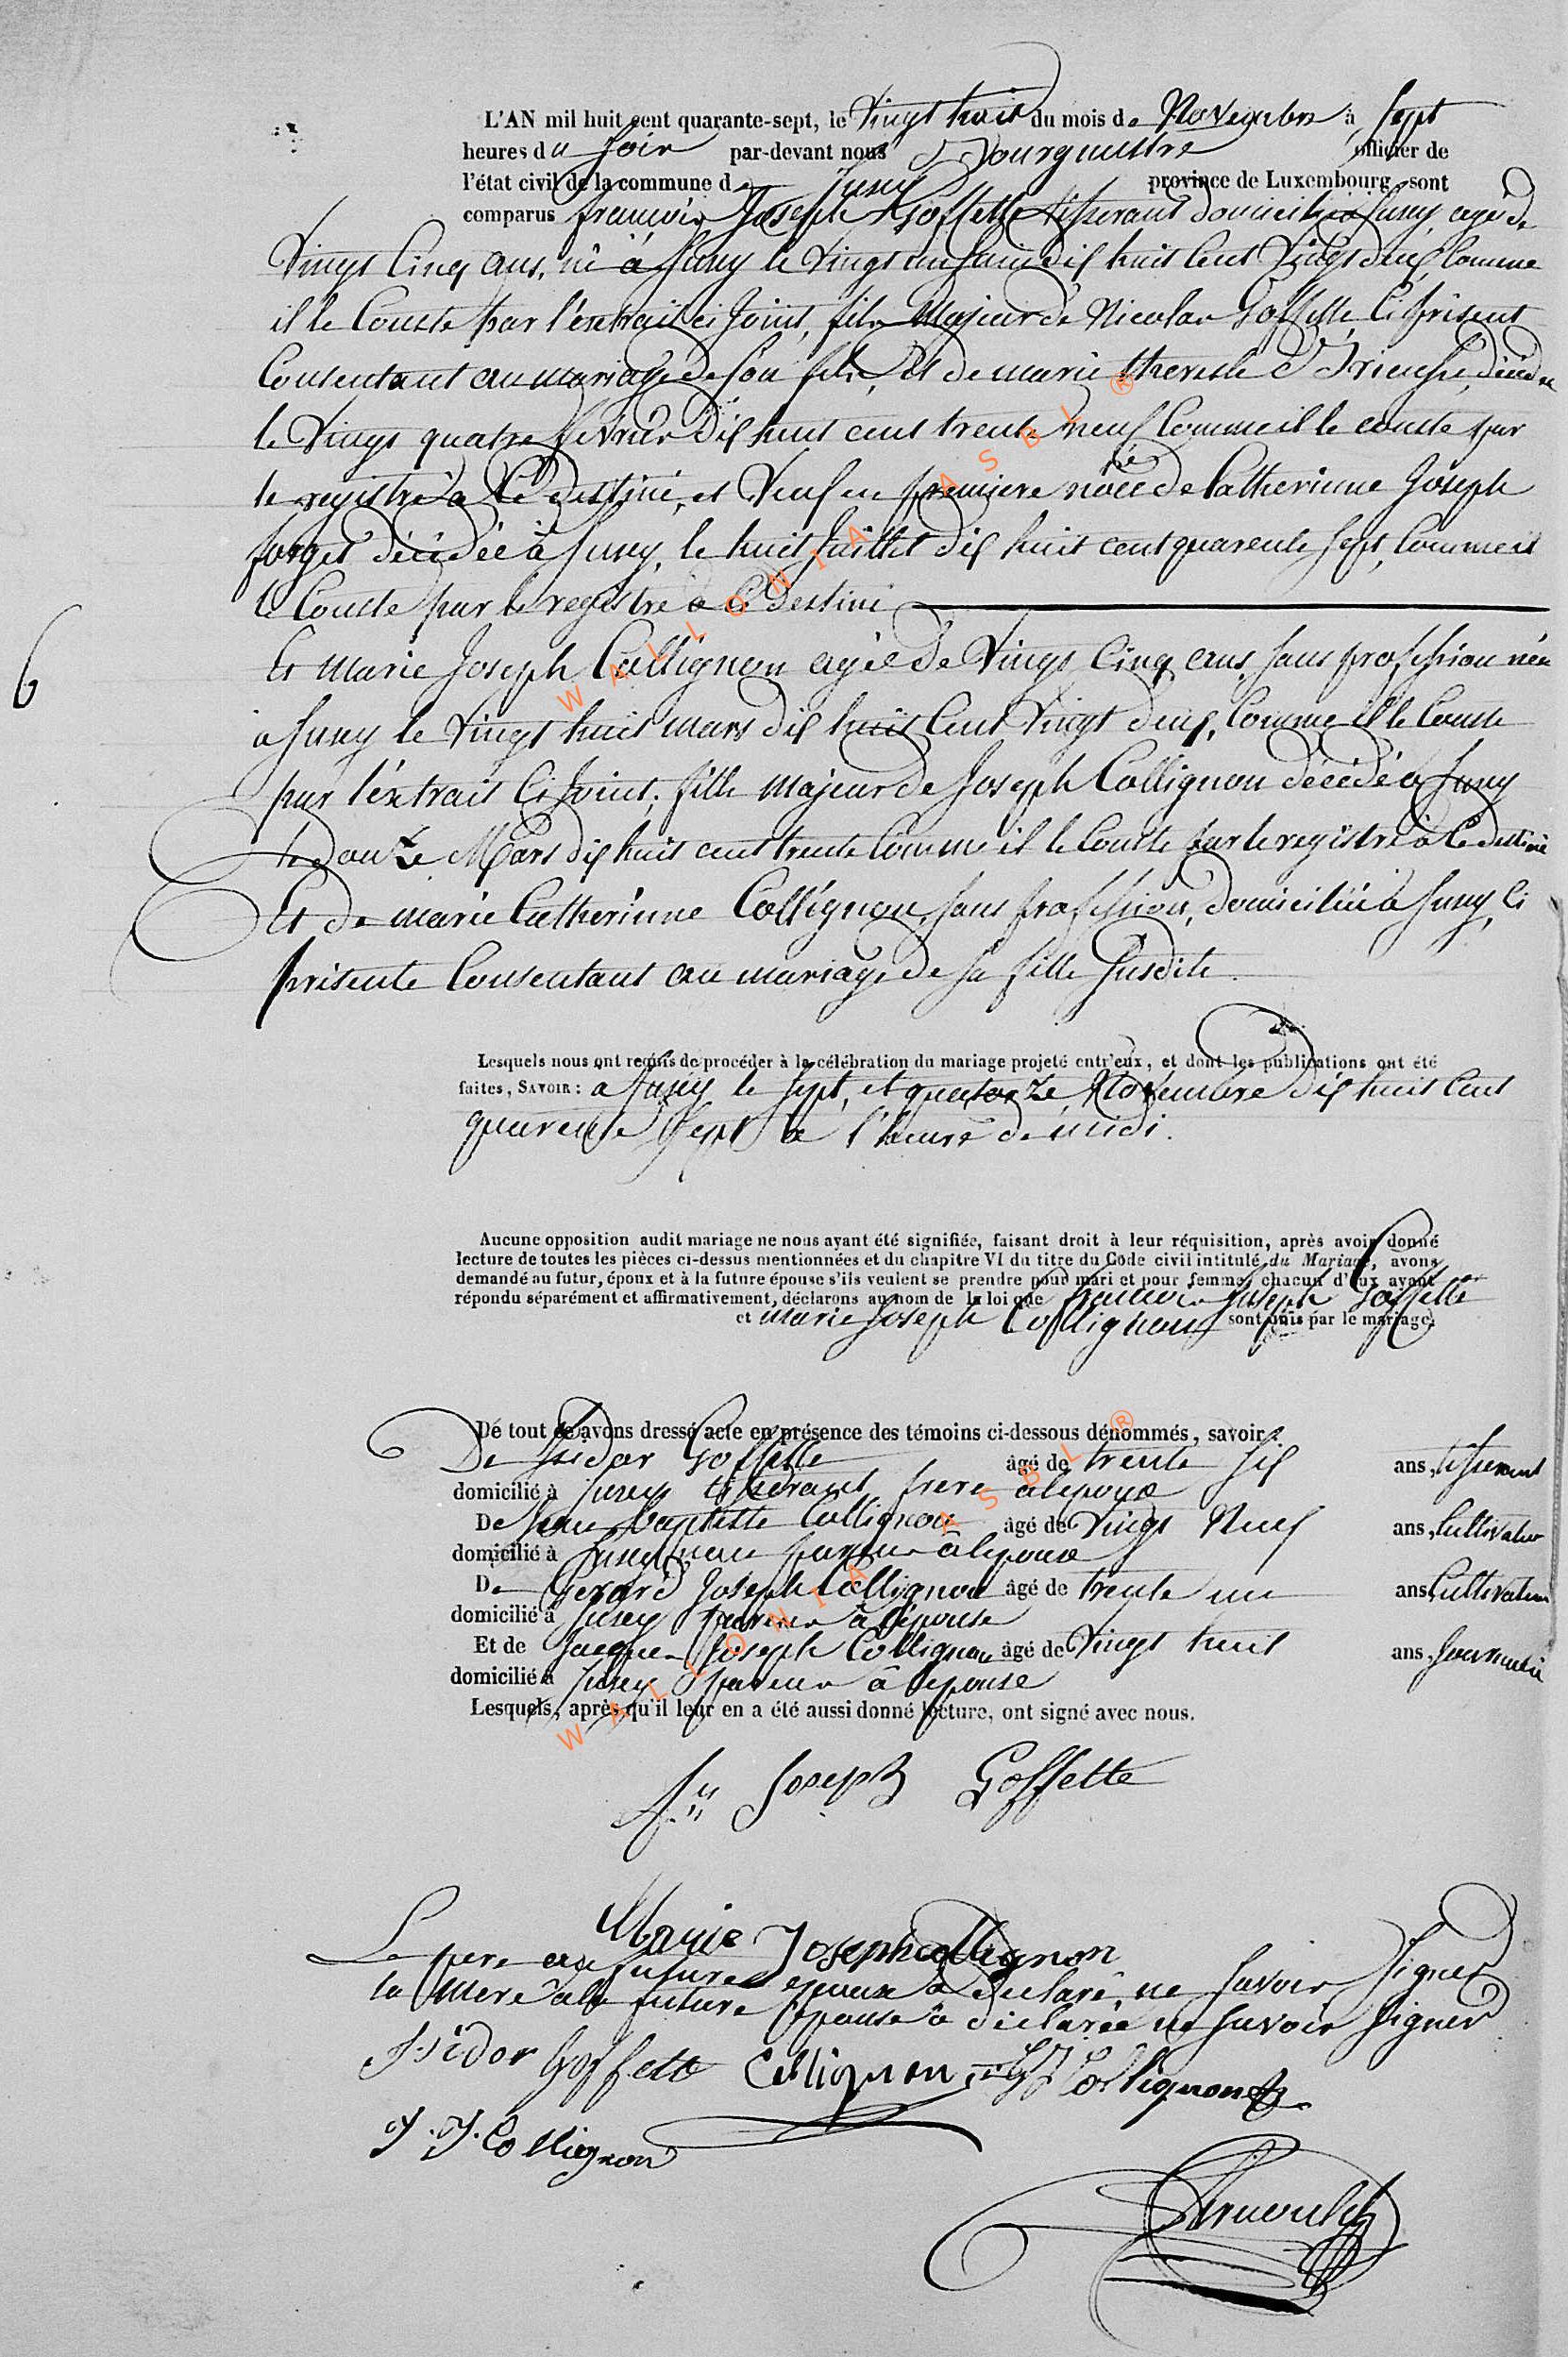 L'AN mil huit cent quarante-sept, le Vingt huit du mois de Novembre à Sept
heures du Soir par-devant nous Bourgmestre officier de
l'état civil de la commune de Suxy province de Luxembourg, sont
comparus françois Joseph Goffette tisserant domicilié à Suxy, agé de
Vingt Cinq ans, né à Suxy le Vingt un Juin dix huit Cent Vingt deux, Comme
il le Conste par l'éxtrait ci Joint, fils Majeur de Nicolas Goffette, Ci présent
Consentant au mariage de Son fils, Et de marie theresse décédée
le Vingt quatre février Dix huit cent trente neuf Comme il le conste par
le registre à Ce destiné, et Veuf en premiere noce de Catherinne Joseph
forget décédée à Suxy, le huit Juillet dix huit cent quarente Sept, Comme il
le Conste par le registre à Ce destiné
6
Et Marie Joseph Collignon agée de Vingt Cinq ans, Sans profession née
à Suxy le Vingt huit mars dix huit Cent Vingt deux, Comme il le Conste
par l'éxtrait Ci Joint, fille Majeur de Joseph Collignon décédé à Suxy
le douze Mars dix huit cent trente Comme il le Conste par le registre à Ce destiné
Et de marie Catherinne Collignon, Sans profession, domiciliée à Suxy, Ci
présente Consentant au mariage de Sa fille Susdite.
Lesquels nous ont requis de procéder à la célébration du mariage projeté entr'eux, et dont les publications ont été
faites, SAVOIR : à Suxy le Sept, et quatorze Novembre dix huit Cent
quarente Sept à l'heure de midi.
Aucune opposition audit mariage ne nous ayant été signifiée, faisant droit à leur réquisition, après avoir donné
lecture de toutes les pièces ci-dessus mentionnées et du chapitre VI du titre du Code civil intitulé du Mariage, avons
demandé au futur, époux et à la future épouse s'ils veulent se prendre pour mari et pour femme, chacun d'eux ayant
répondu séparément et affirmativement, déclarons au nom de la loi que francois Joseph Goffette
et marie Joseph Collignon sont unis par le mariage.
De tout ce avons dressé acte en présence des témoins ci-dessous dénommés, savoir :
De Isidor Goffette âgé de trente Six ans, tisserant
domicilié à Suxy tisserant frere à lepoux
De Jean Baptiste Collignon âgé de Vingt Neuf ans, Cultivateur
domicilié à Suxy parent à lepouse
De Gerard Joseph Collignon âgé de trente un ans, Cultivateur
domicilié à Suxy parent à lépouse
Et de Jacques Joseph Collignon âgé de Vingt huit ans, Journalié
domicilié à Suxy parent à lepouse
Lesquels, après qu'il leur en a été aussi donné lecture, ont signé avec nous.
f.s Joseph Goffette
Marie Joseph collignon
Le pere au future epoux a declaré, ne Savoir Signer
la Mere à la future Epouse à déclarée ne Savoir Signer
Isidor Goffette Collignon G J Collignon
J. J. Collignon
Arnould